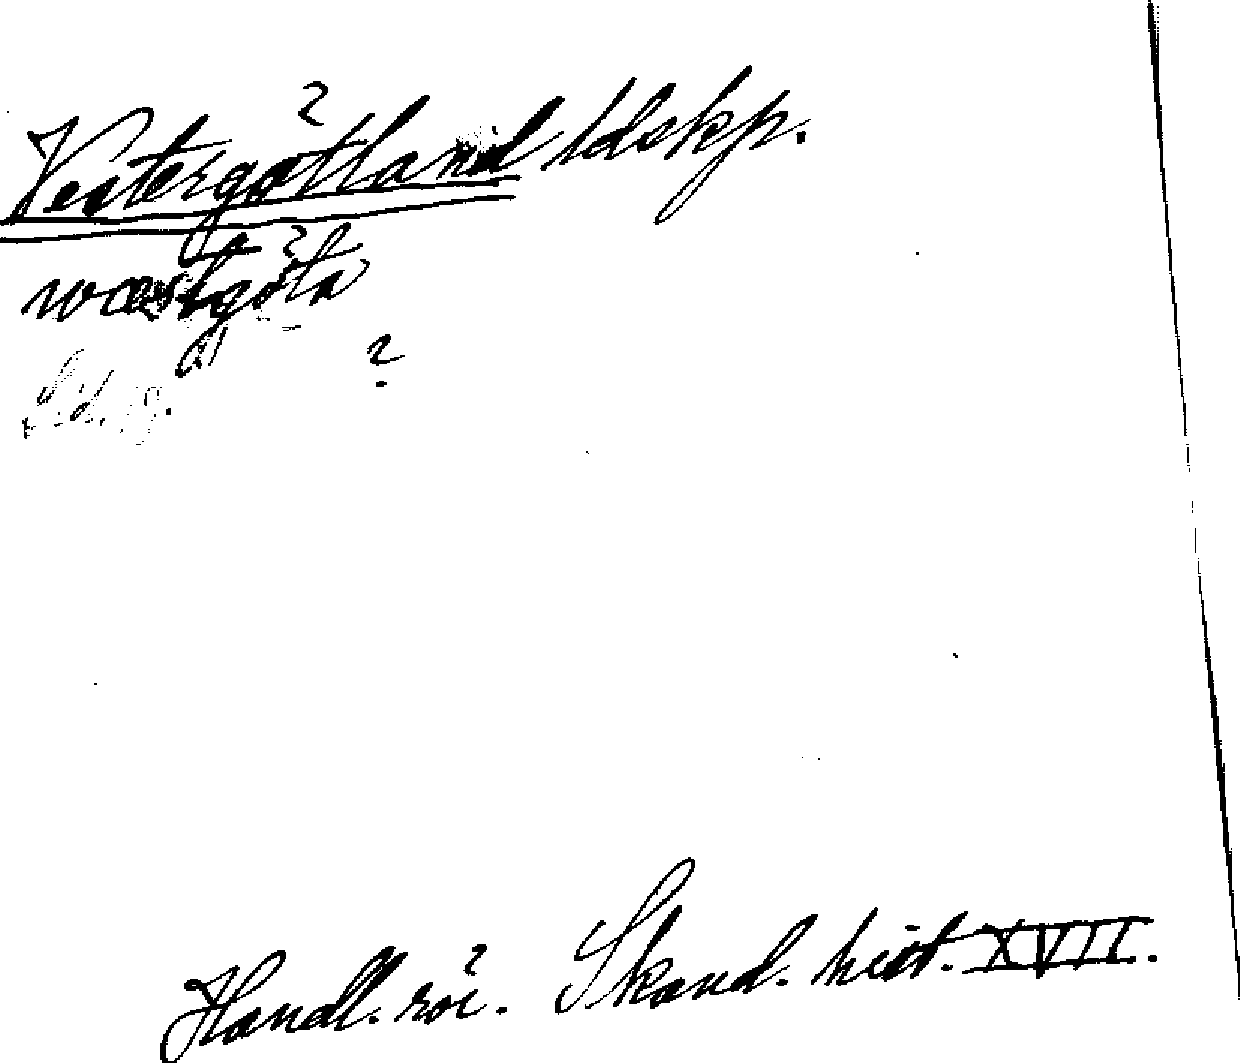 Vestergötland ldskp.
wæstgöta
Sid. 19.
Handl. rör. Skand. hist. XVII.